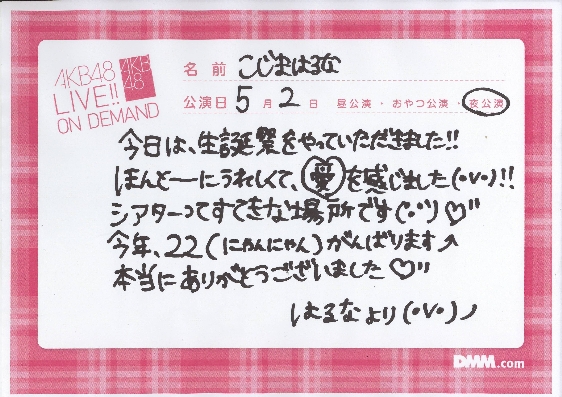 AKB48
LIVE!!
ON DEMAND
AKB
48
名前 こじまはるな
公演日 5月2日 昼公演・おやつ公演・夜公演
今日は、生誕祭をやっていただきました!!
ほんとーにうれしくて、愛を感じました(・v・)!!
シアターってすてきな場所です(・º・)♡"
今年、22(にゃんにゃん)がんばります↗
本当にありがとうございました♡"
はるなより(・v・)ノ
DMM.com